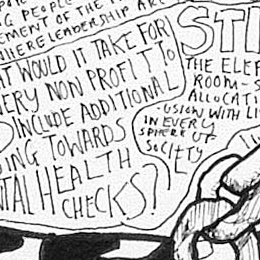 G PEOPLE
EMENT OF THE
WHERE LEADERSHIP ARE
AT WOULD IT TAKE FOR
VERY NON PROFIT TO
INCLUDE ADDITIONAL
ING TOWARDS
NTAL HEALTH
CHECKS?
STI
THE ELEP
ROOM-S
ALLOCATI
-USION WITH LI
IN EVERY
SPHERE OF
SOCIETY